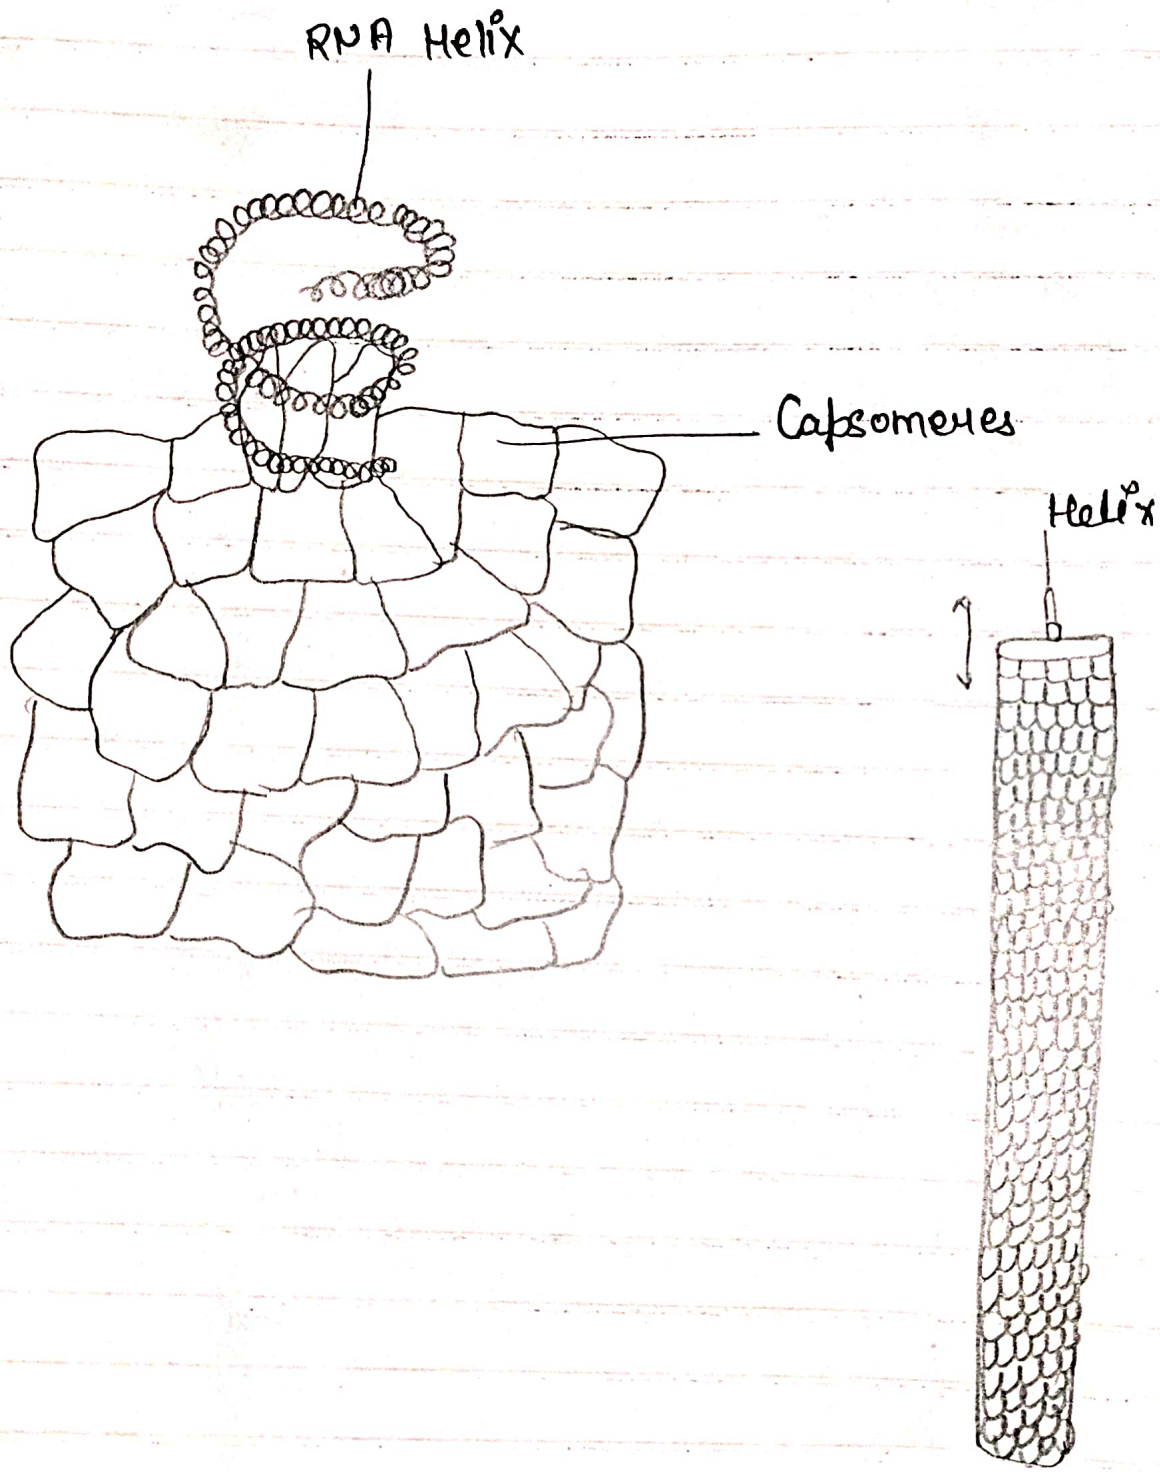 RNA Helix
Capsomeres
Helix